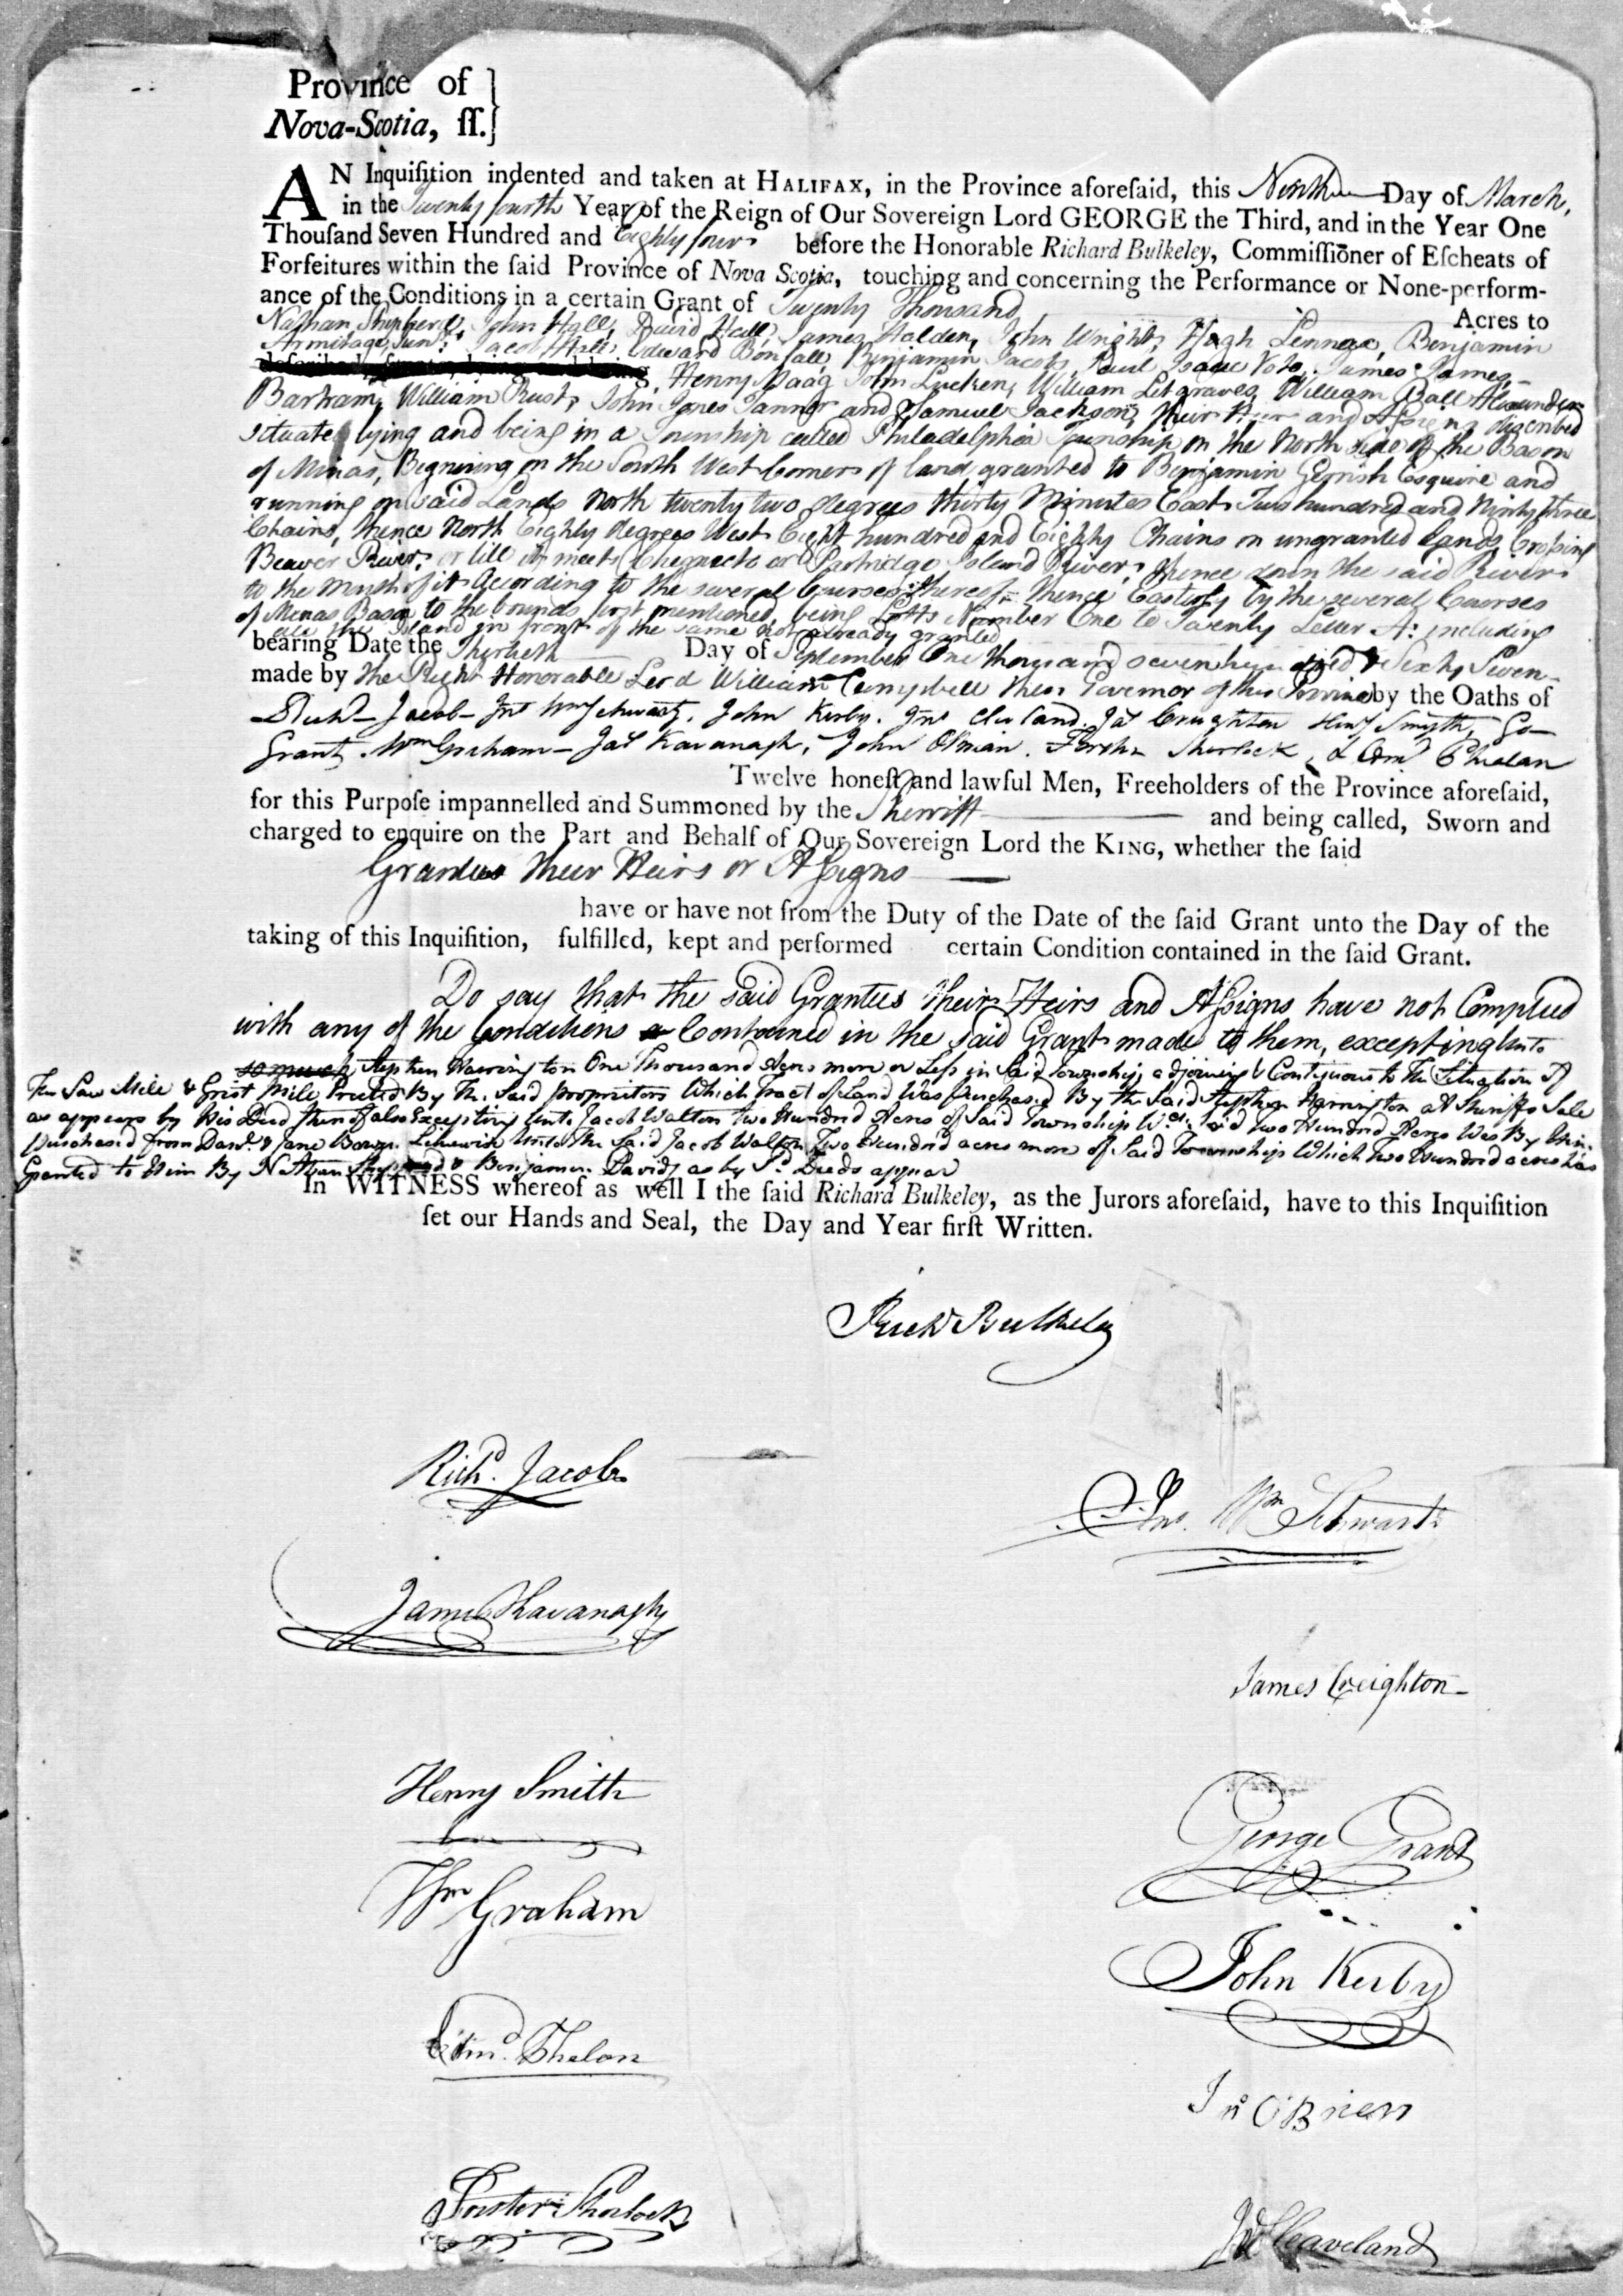 Province of }
Nova-Scotia, ſſ. }
AN Inquiſition indented and taken at HALIFAX, in the Province aforeſaid, this Ninth Day of March,
in the Twenty fourth Year of the Reign of Our Sovereign Lord GEORGE the Third, and in the Year One
Thouſand Seven Hundred and Eighty four before the Honorable Richard Bulkeley, Commiſſioner of Eſcheats of
Forfeitures within the ſaid Province of Nova Scotia, touching and concerning the Performance or None-perform-
ance of the Conditions in a certain Grant of Twenty Thousand Acres to
Nathan Shepherd, John Hall, David Hall, James Halden, John Wright, Hugh Lennox, Benjamin
Armitage Junr. Jacob Hall, Edward Bonsall, Benjamin Jacobs, Paul Isaac Voto, James James,
Henry Haag John Lucken, William Litgraves William Ball Alexander
Bartram, William Rust, John Jones Tanner and Samuel Jackson, their Heirs and Assigns discribed
situate lying and being in a Township called Philadelphia Township on the North side of the Bason
of Minas, Beginning on the South West Corner of land granted to Benjamin Gerrish Esquire and
running on said Lands North twenty two degrees thirty Minutes East Two hundred and Ninty three
Chains, thence North Eighty degrees West Eight hundred and Eighty Chains on ungranted lands, Crossing
Beaver River, or till it meets Chegnecto or Partridge Island River, thence down the said River
to the Mouth of it According to the several Courses thereof, thence Easterly by the several Courses
of Menas Bason to the bounds first mentioned, being Lotts Number One to Twenty Letter A: including
all the Island in front of the same not already granted
bearing Date the Thirtieth Day of September One thousand seven hundred & Sixty Seven
made by the Right Honorable Lord William Campbell then Governor of this Province by the Oaths of
Richd Jacob Jno Wm Schwartz, John Kirby. Jno Cleveland. Jas Creighton Heny Smyth, Go
Grant, Wm Graham Jas Kavanagh, John OBrian. Forstr Sherlock, & Edmd Phelan
Twelve honeſt and lawful Men, Freeholders of the Province aforeſaid,
for this Purpoſe impannelled and Summoned by the Sherriff and being called, Sworn and
charged to enquire on the Part and Behalf of Our Sovereign Lord the KING, whether the ſaid
Grantees their Heirs or Assigns
have or have not from the Duty of the Date of the ſaid Grant unto the Day of the
taking of this Inquiſition, fulfilled, kept and performed certain Condition contained in the ſaid Grant.
Do say that the said Grantees their Heirs and Assigns have not Complied
with any of the Conditions Contained in the said Grant made to them, excepting Unto
so much Stephen Harrington One Thousand Acres more or Less in Said Township adjoining & Contiguous to The Situation of
The Saw Mile & Grist Mile Erected By The Said proprietors Which Tract of Land Was Purchased By the Said Stephen Harrington at Sheriffs Sale
as appears by His Deed thereof also Excepting Unto Jacob Walton two Hundred Acres of Said Township Wch. Said two Hundred Acres Was By Him
purchased from Danl. & Jane Bowen Likewise Unto the Said Jacob Walton Two Hundred acres more of Said Township Which Two Hundred acres was
Granted to Him By Nathan Shepherd & Benjamin Davids as by Sd. Deeds appear
In WITNESS whereof as well I the ſaid Richard Bulkeley, as the Jurors aforeſaid, have to this Inquiſition
ſet our Hands and Seal, the Day and Year firſt Written.
Richd Bulkeley
Richd. Jacobs
Jno. Wm Schwartz
James Kavanagh
James Creighton
Henry Smith
George Grant
Wm Graham
John Kirby
Edmd. Phelon
Jno OBrien
Forster Sherlock
Jno Cleaveland